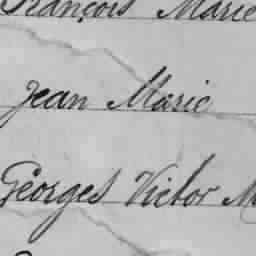 François Marie
Jean Marie
Georges Victor M